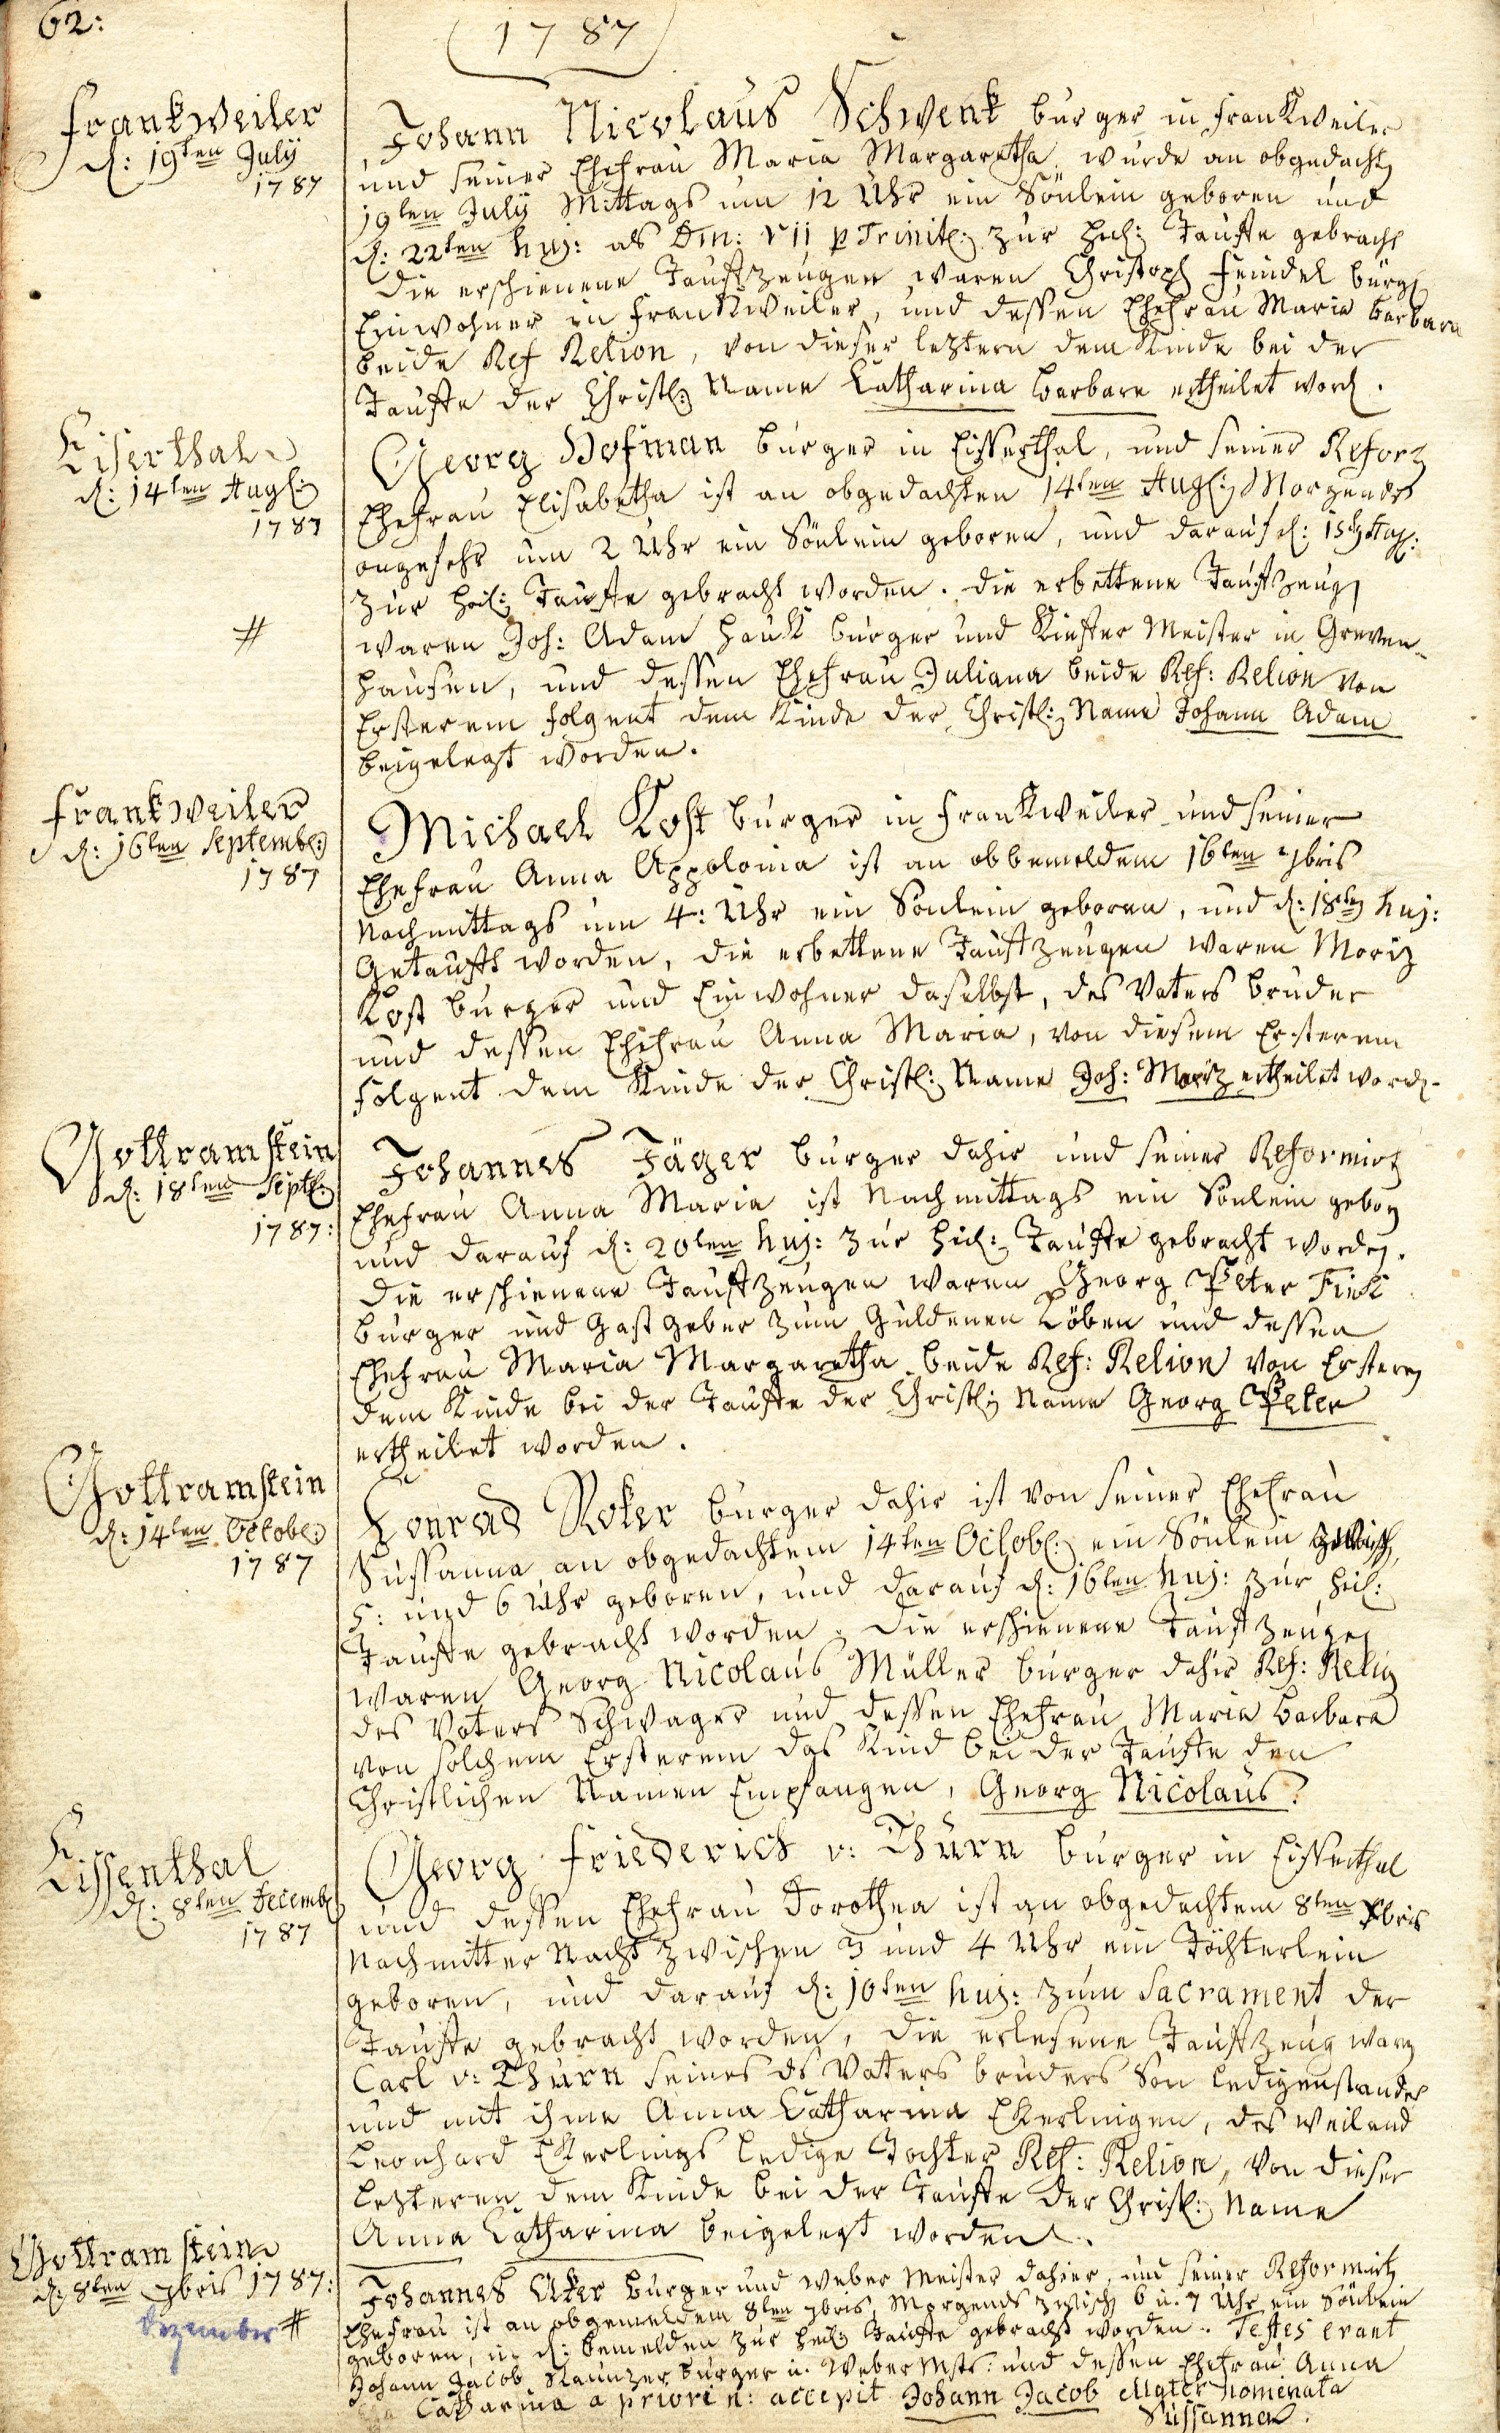 62:
1787
Frankweiler
d: 19ten July
1787
Johann Nicolaus Schwenk burger in Frankweiler
und seiner Ehefrau Maria Margaretha wurde an obgedacht
19ten July Mittags um 12 Uhr ein Sönlein geboren und
d: 22ten huj: als Dm: VII p Trinit: zur heil: Tauffe gebracht
die erschienene Taufzeugen waren Christoph Feindel bürg
Einwohner in Frankweiler, und dessen Ehefrau Maria barbara
beide Ref Relion, von dieser leztern dem Kinde bei der
Tauffe der Christl: Name Catharina barbara ertheilet word.
Eiserthal
d: 14ten Aug:
1787
Georg Hofman burger in Eisserthal, und seiner Reform
Ehefrau Elisabetha ist an obgedachten 14ten Aug: Morgends
ongefehr um 2 Uhr ein Sönlein geboren, und darauf d: 15ten Aug:
zur heil: Tauffe gebracht worden. die erbettene Taufzeug
#
waren Joh: Adam Hauk burger und Kieffer Meister in Greven-
hausen, und dessen Ehefrau Juliana beide Ref: Relion von
Ersterem folgent dem Kinde der Christl: Name Johann Adam
beigelegt worden.
Frankweiler
d: 16ten Septemb:
1787
Michael Kost burger in Frankweiler und seiner
Ehefrau Anna Appolonia ist an obbemeldem 16ten 7bris
Nachmittags um 4: Uhr ein Sönlein geboren, und d: 18ten huj:
Getaufft worden, die erbettene Taufzeugen waren Moriz
Kost burger und Einwohner daselbst, des Vaters bruder
und dessen Ehefrau Anna Maria, von diesem Ersterem
folgent dem Kinde der Christl: Name Joh: Moriz ertheilet word.
Gottramstein
d: 18ten Sept:
1787:
Johannes Jäger burger dahir und seiner Reformirt
Ehefrau Anna Maria ist Nachmittags ein Sönlein gebor
und darauf d: 20ten huj: zur heil: Tauffe gebracht worden.
die erschienene Taufzeugen waren Georg Peter Fink
burger und Gast geber zum Guldenen Löben und dessen
Ehefrau Maria Margaretha beide Ref: Relion von Ersterem
dem Kinde bei der Tauffe der Christl: Name Georg Peter
ertheilet worden.
Gottramstein
d: 14ten Octob:
1787
Conrad Roker burger dahir ist von seiner Ehefrau
Sussanna an obgedachtem 14ten Octob: ein Sönlein zwisch
5: und 6 Uhr geboren, und darauf d: 16ten huj: zur heil:
Tauffe gebracht worden. die erschienene Taufzeuge
waren Georg Nicolaus Müller burger dahir Ref: Relig
des Vaters Schwager und dessen Ehefrau Maria barbara
von solchem Ersterem das Kind bei der Tauffe den
Christlichen Namen Empfangen, Georg Nicolaus.
Eissenthal
d: 8ten Decemb
1787
Georg Friederich v: Thurn burger in Eisserthal
und dessen Ehefrau Dorothea ist an obgedachtem 8ten Xbris
Nachmitter Nacht zwischen 3 und 4 Uhr ein Töchterlein
geboren, und darauf d: 10ten huj: zum Sacrament der
Tauffe gebracht worden, die erlesene Taufzeug waren
Carl v: Thurn seines ds Vaters bruders Son ledigenstandes
und mit ihme Anna Catharina Ekerlingen, des weiland
Leonhard Ekerlings ledige Tochter Ref: Relion, von dieser
lezteren dem Kinde bei der Tauffe der Christl: Name
Anna Catharina beigelegt worden.
Gottramstein
d: 8ten 7bris 1787:
Dezember #
Johannes Aker burger und weber Meister dahier, und seiner Reformirt
Ehefrau ist an obgemeldem 8ten 7bris, Morgends zwisch 6 u. 7 Uhr ein Sönlein
geboren, u. d: bemelden zur heil: Tauffe gebracht worden. Testes erant
Johann Jacob burger u. Weber Mstr: und dessen Ehefrau Anna
Catharina a priori n: accepit Johann Jacob Mater nomenata
Sussanna.